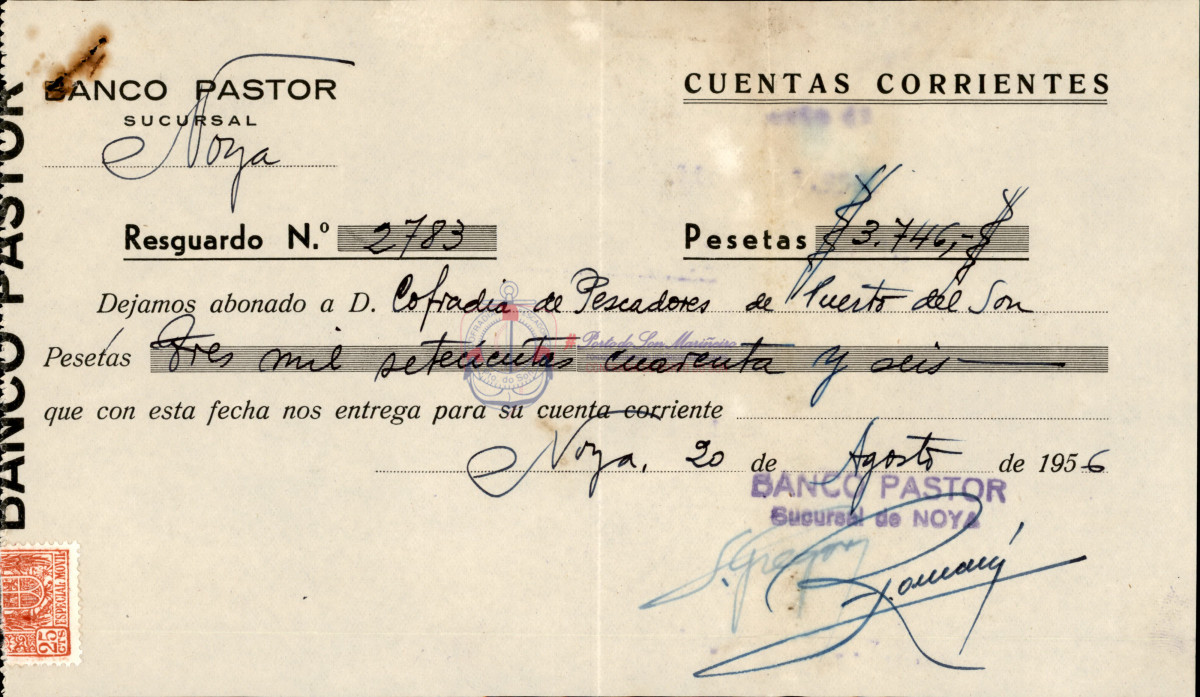 BANCO PASTOR
BANCO PASTOR
SUCURSAL
Noya
CUENTAS CORRIENTES
Resguardo N.º 2783
Pesetas $3.746,-$
Dejamos abonado a D. Cofradia de Pescadores de Puerto del Son
Porto do Son Mariñeiro
Pesetas Tres mil setecientas cuarenta y seis
que con esta fecha nos entrega para su cuenta corriente
Noya, 20 de Agosto de 1956
BANCO PASTOR
Sucursal de NOYA
S. Gregory
ESPECIAL MOVIL
25 CTS